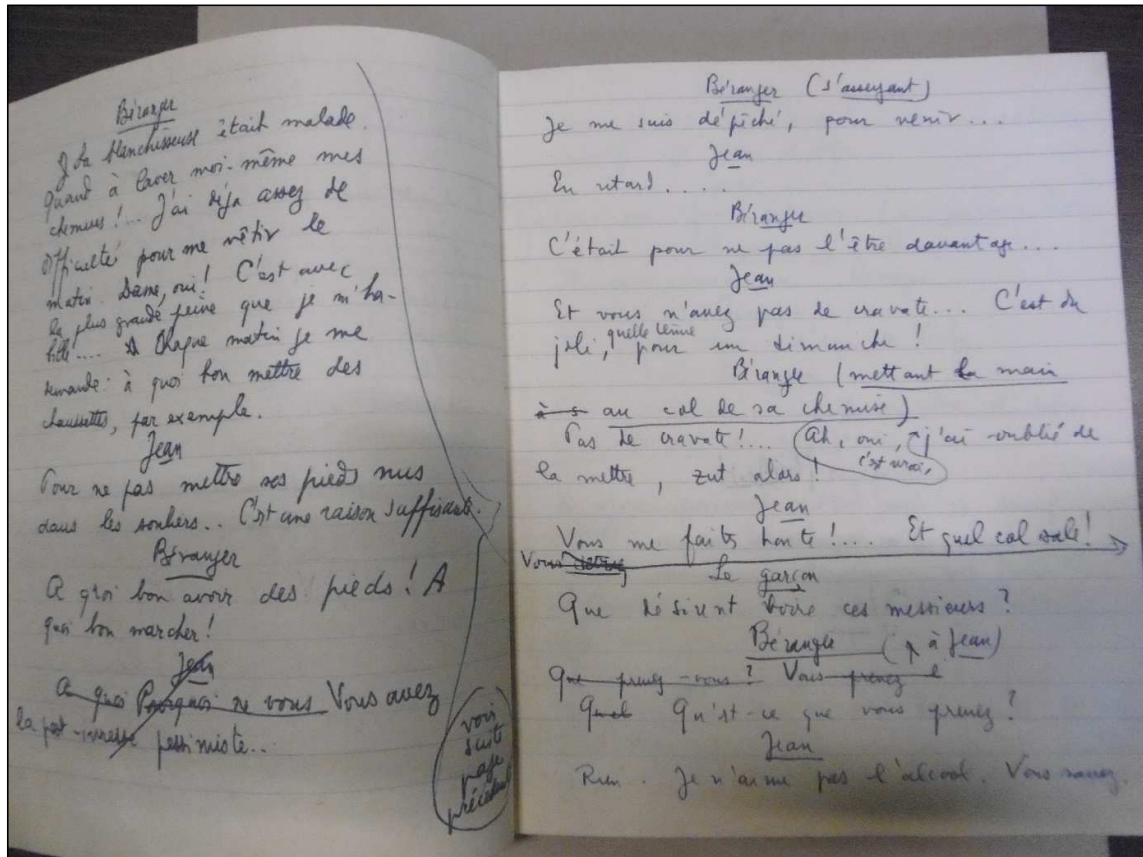 Béranger
La blanchisseuse était malade.
Quand à laver moi-même mes
chemises!... J'ai déjà assez de
difficulté pour me vêtir le
matin. Dame, oui! C'est avec
la plus grande peine que je m'ha-
bille.... Chaque matin je me
demande: à quoi bon mettre des
chaussettes, par exemple.
Jean
Pour ne pas mettre ses pieds nus
dans les souliers.. C'est une raison suffisante.
Béranger
A quoi bon avoir des pieds! A
quoi bon marcher!
Jean
A quoi Pourquoi ne vous Vous avez
la post-ivresse pessimiste..
voir
suite
page
précédente
Béranger (s'asseyant)
Je me suis dépêché, pour venir...
Jean
En retard....
Béranger
C'était pour ne pas l'être davantage...
Jean
Et vous n'avez pas de cravate... C'est du
joli, quelle tenue pour un dimanche!
Béranger (mettant la main
à s au col de sa chemise)
Pas de cravate!... Ah, oui, c'est vrai, j'ai oublié de
la mettre, zut alors!
Jean
Vous me faites honte!... Et quel col sale!
Vous
Le garçon
Que désirent boire ces messieurs?
Béranger (à Jean)
Que prenez-vous? Vous prenez
Quel Qu'est-ce que vous prenez?
Jean
Rien. Je n'aime pas l'alcool. Vous savez.